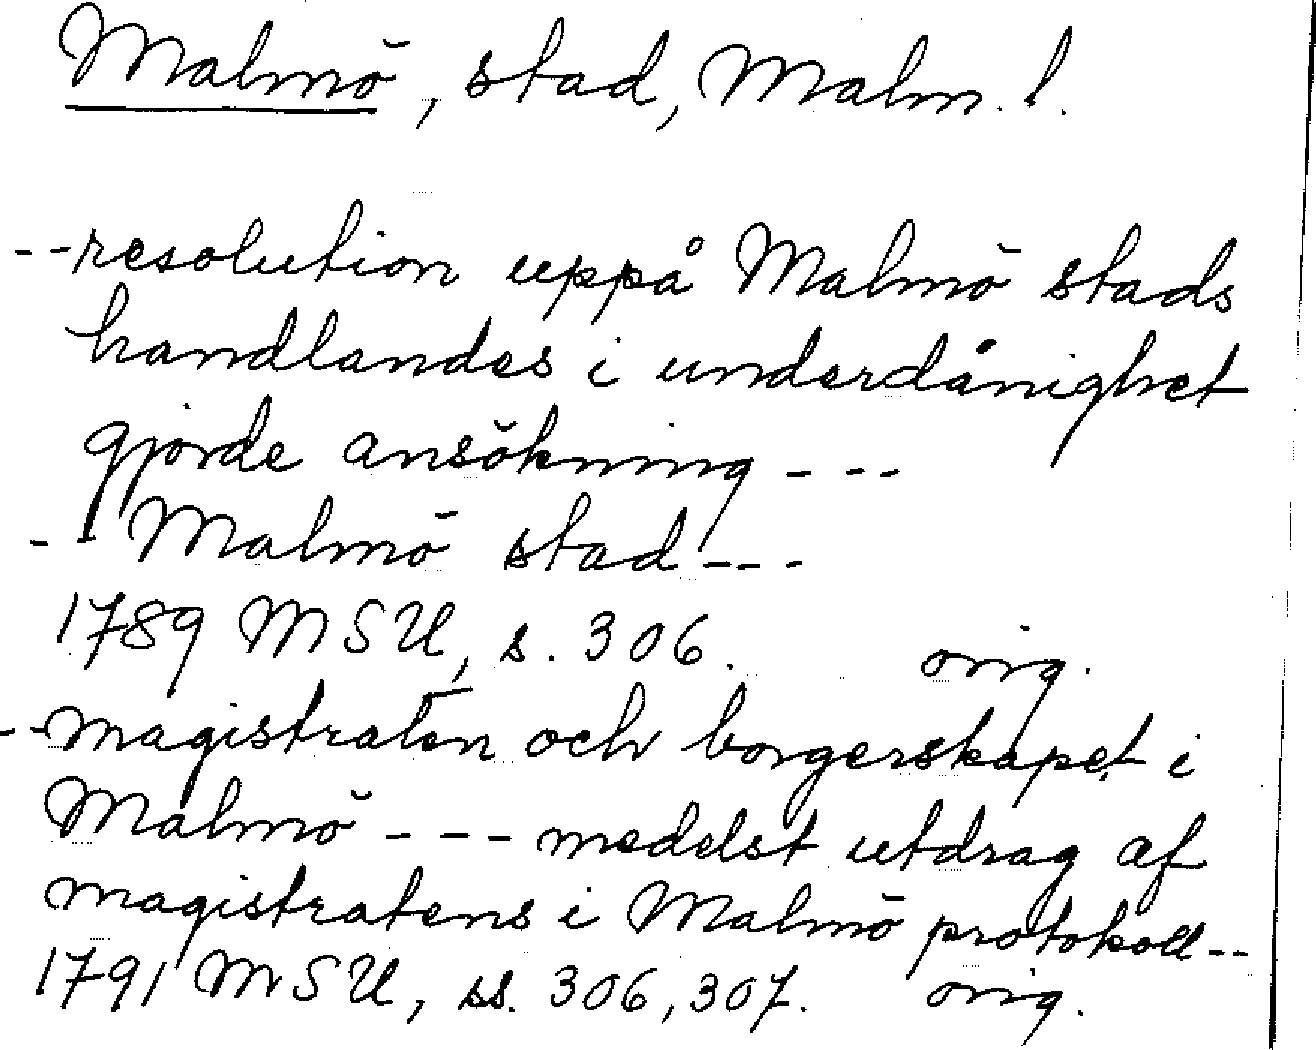 Malmö, stad, Malm. l.
--resolution uppå Malmö stads
handlandes i underdånighet
gjorde ansökning ---
-- Malmö stad ---
1789 MSU, s. 306. orig.
--magistraten och borgerskapet i
Malmö --- medelst utdrag af
magistratens i Malmö protokoll--
1791 MSU, ss. 306, 307. orig.